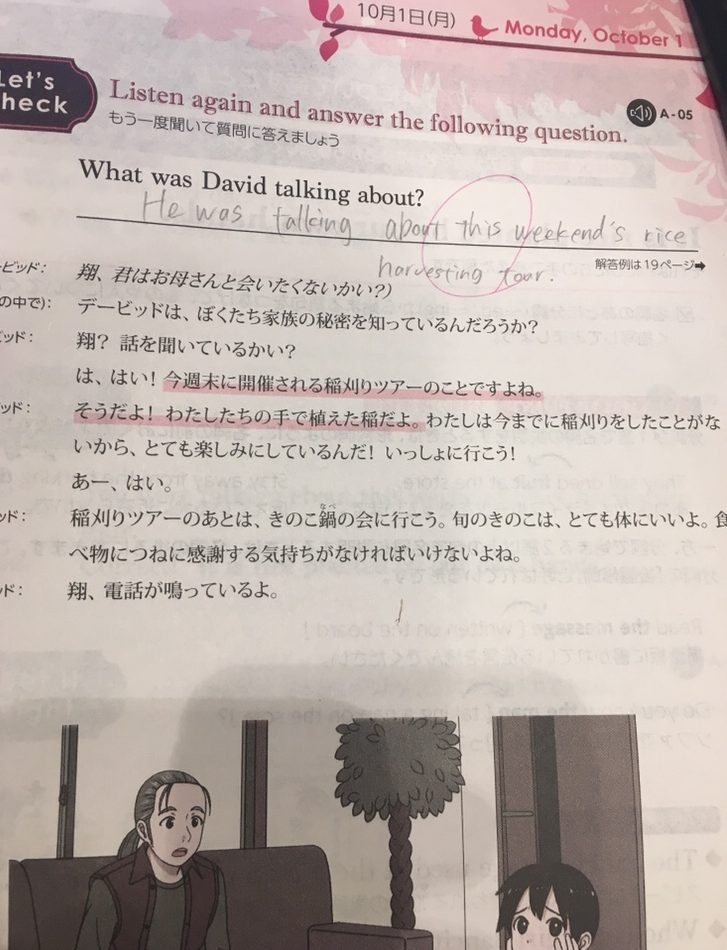 10月1日(月)
Monday, October 1
Let's
Check
Listen again and answer the following question.
A-05
もう一度聞いて質問に答えましょう
What was David talking about?
He was talking about this weekend's rice
harvesting tour.
解答例は19ページ➡
ービッド: 翔、君はお母さんと会いたくないかい?)
の中で): デービッドは、ぼくたち家族の秘密を知っているんだろうか?
ビッド: 翔? 話を聞いているかい?
は、はい! 今週末に開催される稲刈りツアーのことですよね。
ビッド: そうだよ! わたしたちの手で植えた稲だよ。わたしは今までに稲刈りをしたことがな
いから、とても楽しみにしているんだ! いっしょに行こう!
あー、はい。
ッド: 稲刈りツアーのあとは、きのこ鍋の会に行こう。旬のきのこは、とても体にいいよ。食
べ物につねに感謝する気持ちがなければいけないよね。
ッド: 翔、電話が鳴っているよ。